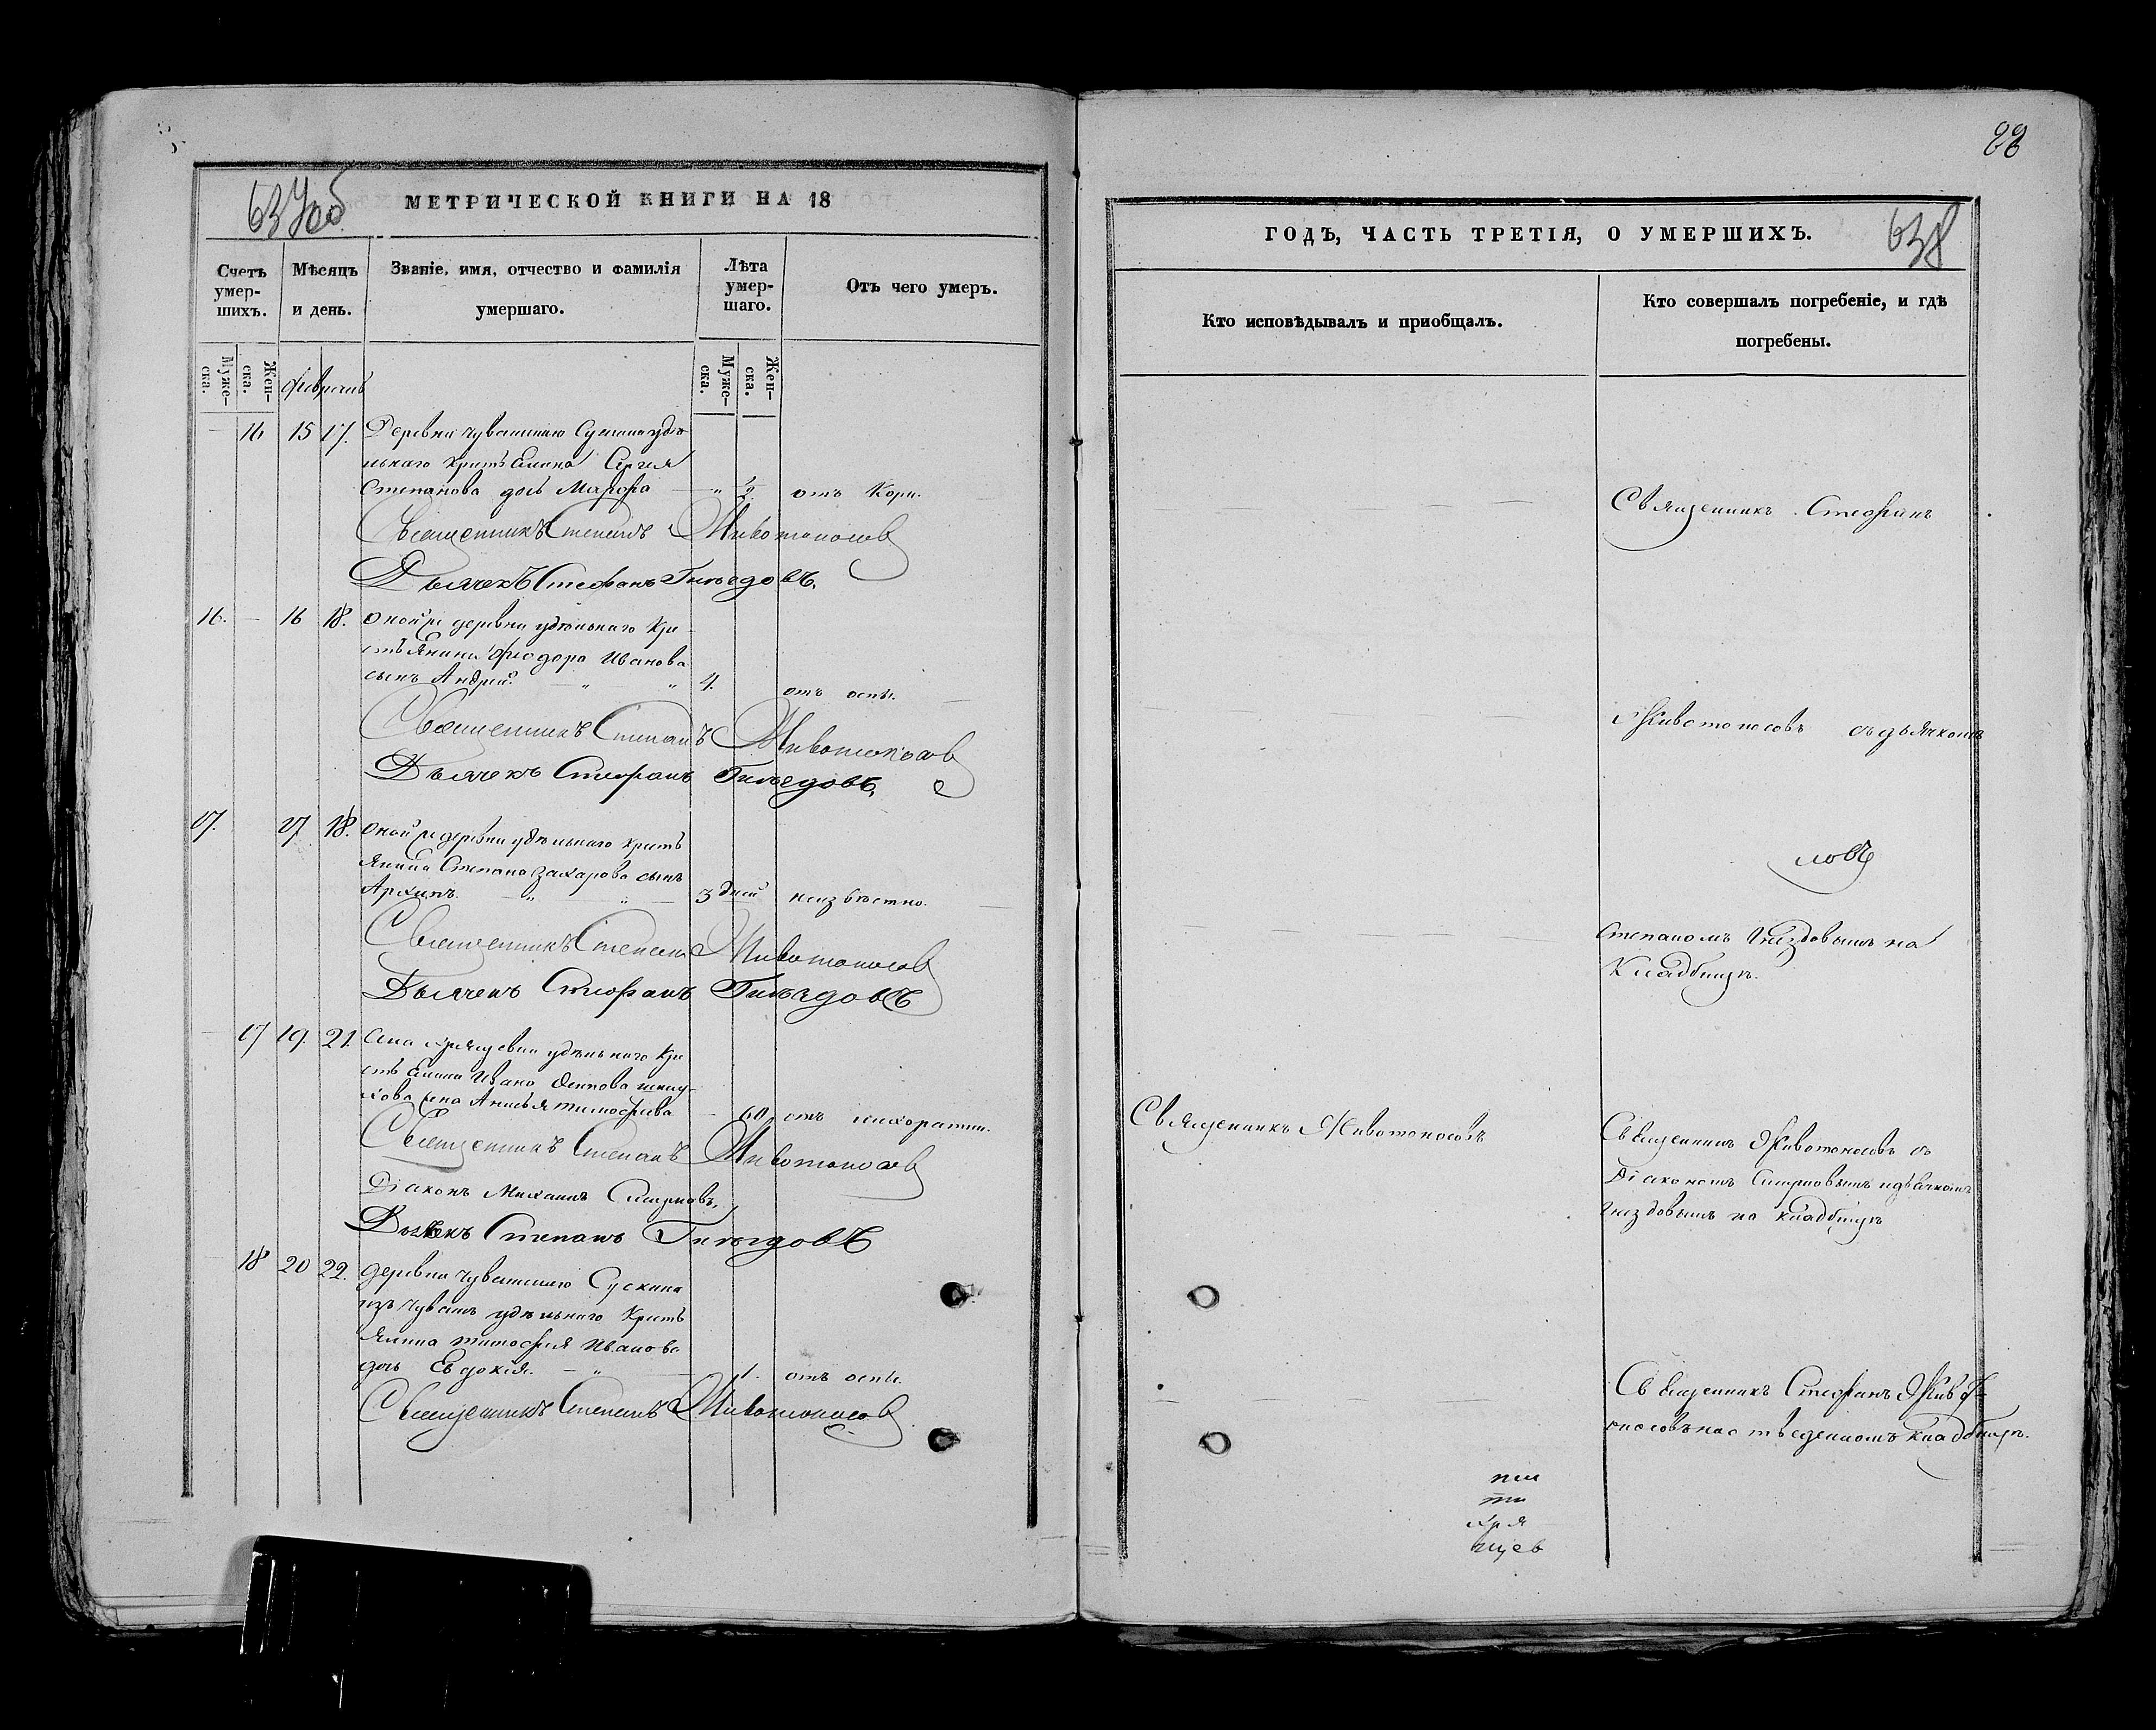 637 об
МЕТРИЧЕСКОЙ КНИГИ НА 18
Счетъ умер-шихъ.
Мѣсяцъ и день.
Званіе, имя, отчество и фамилія умершаго.
Лѣта умер-шаго.
Отъ чего умеръ.
Муже-ска.
Жен-ска.
Муже-ска.
Жен-ска.
февраль
16 15 17. Деревни чувашскаго Сускана удѣ-
льнаго крестьянина Сергея
Степанова дочь Марфа " ½ отъ Кори.
Священникъ Степанъ Животоносов
Дьячекъ Стефанъ Гнѣздовъ.
16. 16 18. Оной же деревни удѣльнаго Кре
стьянина Феодора Иванова
сынъ Андрей. " " 4. отъ оспы.
Священникъ Степанъ Животоносов
Дьячекъ Стефанъ Гнѣздовъ.
17. 17 18. Оной же деревни удѣльнаго кресть
янина Степана Захарова сынъ
Архипъ. " " 3 дней неизвѣстно.
Священникъ Степанъ Животоносов
Дьячекъ Стефанъ Гнѣздовъ
17 19. 21. Села Хрящевки удѣльнаго Кре
стьянина Ивана Осипова
жена Анисья Тимофѣева 60, отъ лихоратки.
Священникъ Степанъ Животоносов
Діаконъ Михаилъ Смирновъ,
Дьячекъ Степанъ Гнѣздовъ
18 20 22. деревни чувашскаго Сускана
изъ чувашъ удѣльнаго Кресть
янина Тимофея Иванова
дочь Евдокія. " 1. отъ оспы.
Священникъ Степанъ Животоносов
638
ГОДЪ, ЧАСТЬ ТРЕТІЯ, О УМЕРШИХЪ.
Кто исповѣдывалъ и приобщалъ.
Кто совершалъ погребеніе, и гдѣ погребены.
Священникъ Стефанъ
Животоносовъ съ дьячкомъ
ловъ
Степаномъ Гнѣздовымъ на
Кладбищѣ.
Священникъ Животоносовъ
Священникъ Животоносовъ съ
Діакономъ Смирновымъ и дьячкомъ
Гнѣздовымъ на кладбищѣ
Священникъ Стефанъ Живот-
оносовъ на отведенномъ кладбищѣ.
хря
щев